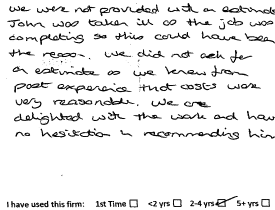 we were not provided with an estimate
John was taken ill as the job was
completing so this could have been
the reason. We did not ask for
an estimate as we knew from
past experience that costs were
very reasonable. We are
delighted with the work and have
no hesitation in recommending him
I have used this firm: 1st Time ☐ <2 yrs ☐ 2-4 yrs ☑ 5+ yrs ☐